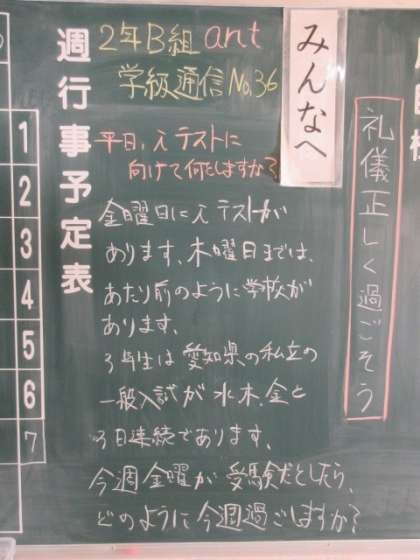 礼儀正しく過ごそう
みんなへ
2年B組 ant
学級通信No.36
平日、入テストに
向けて何としますか?
金曜日に入テストが
あります、木曜日までは、
あたり前のように学校が
あります、
3年生は愛知県の私立の
一般入試が水.木.金と
3日連続であります、
今週金曜が受験だとしたら、
どのように今週過ごしますか?
週行事予定表
1
2
3
4
5
6
7